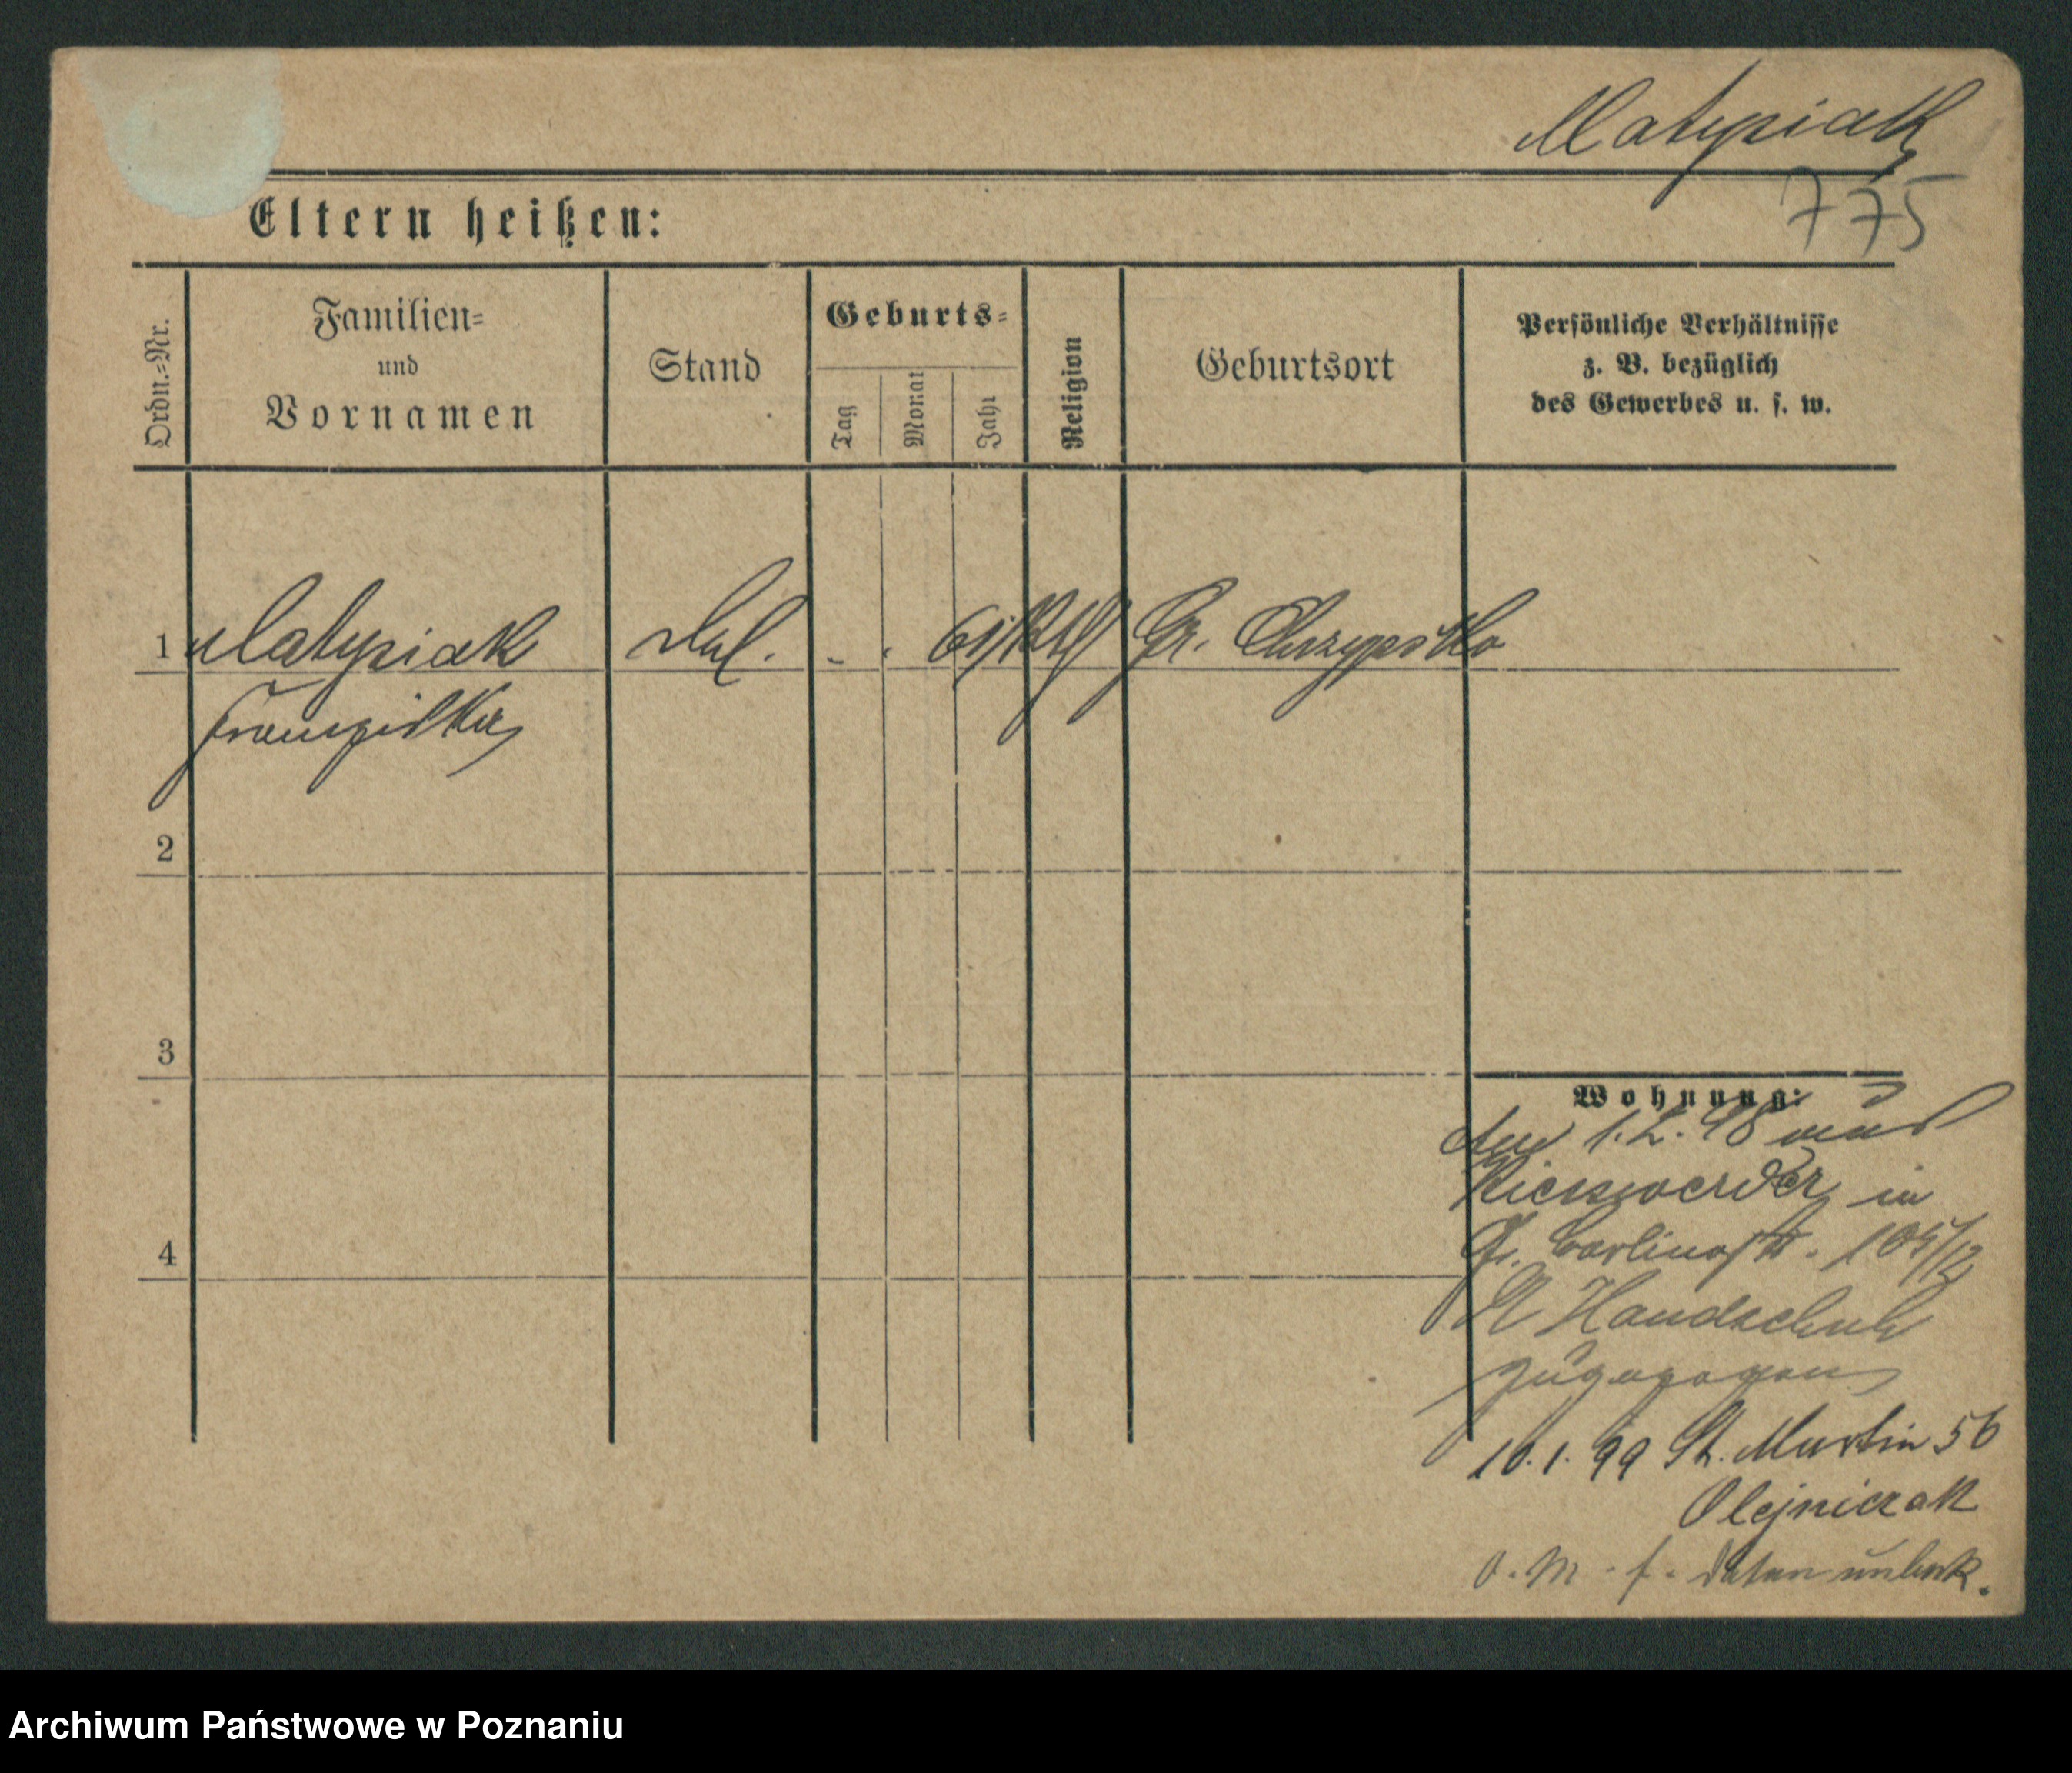 Matysiak
775
Eltern heißen:
Ordn.-Nr.
Familien-
und
Vornamen
Stand
Geburts-
Tag
Monat
Jahr
Religion
Geburtsort
Persönliche Verhältnisse
z. B. bezüglich
des Gewerbes u. s. w.
1 Matysiak - . Gr. Chrzypsko
Franziska
2
3
Wohnung:
1.2.98 aus
in
4
Gr. Berlinerstr.
Handschuh
zugezogen
10.1.99 St. Martin 56
Olejniczak
Daten unbek.
Archiwum Państwowe w Poznaniu